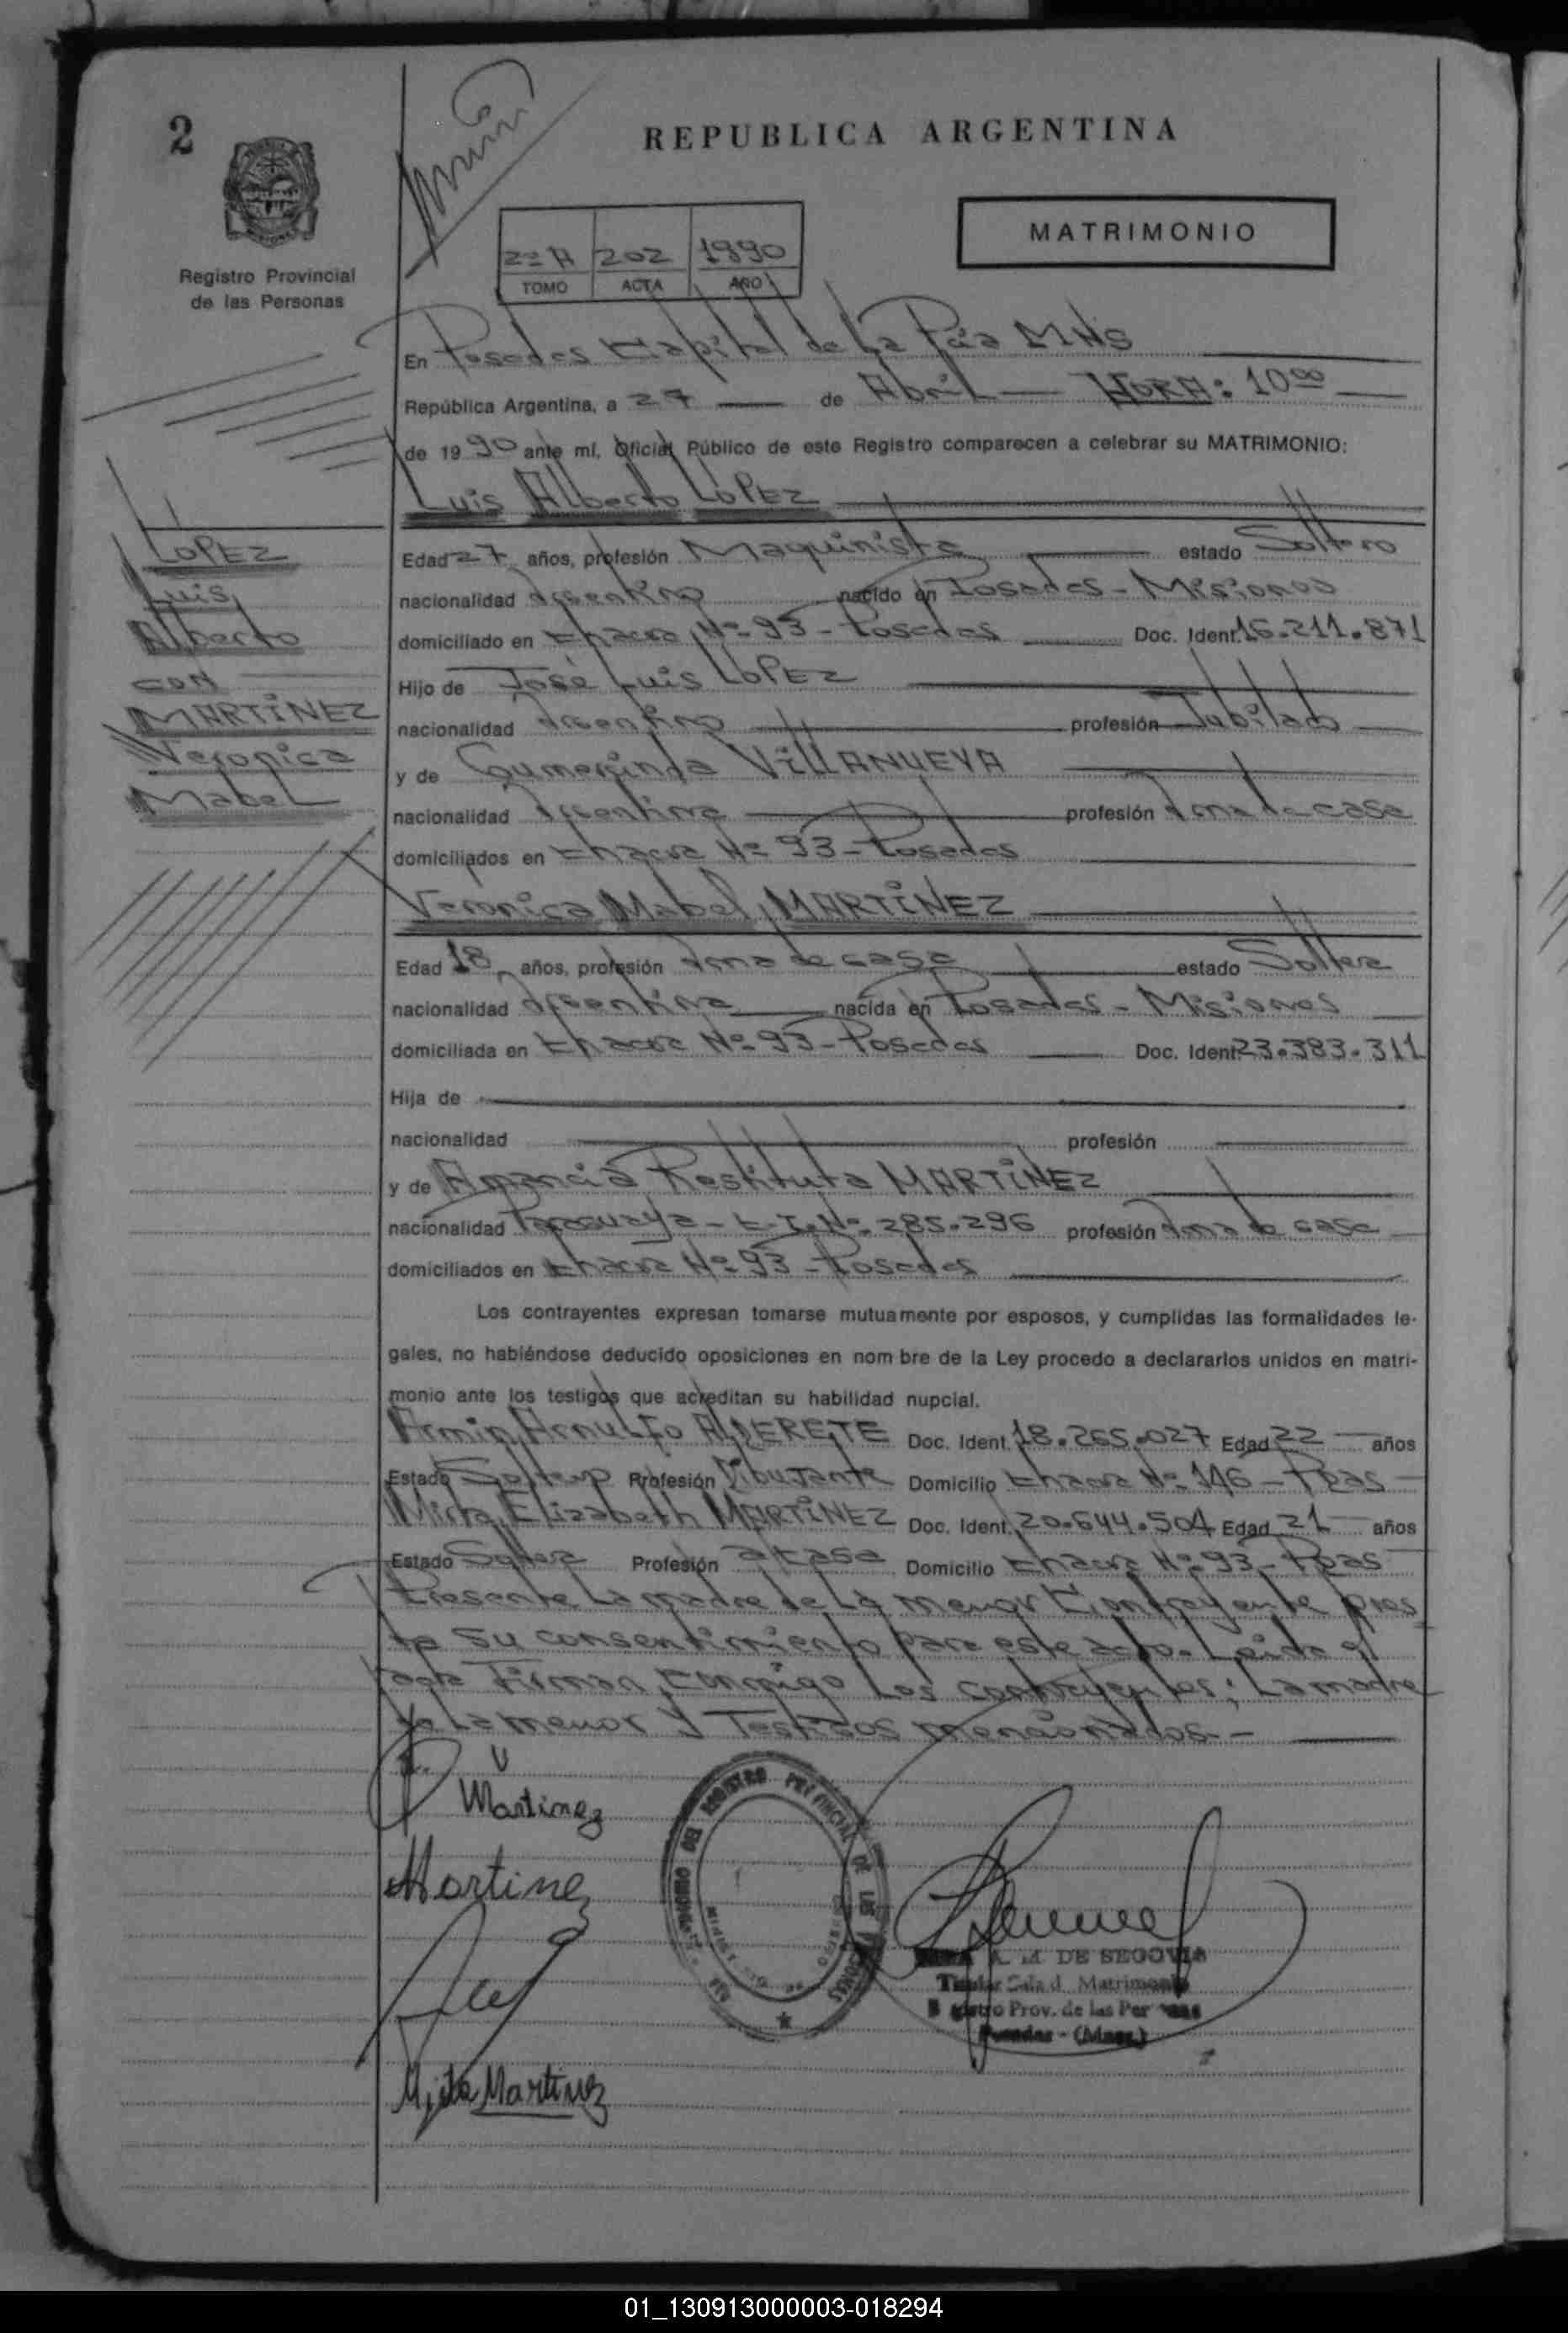 2
REPUBLICA ARGENTINA
MATRIMONIO
Registro Provincial
de las Personas
2º A 202 1990
TOMO ACTA AÑO
En Posadas Capital de La Pcia MNS
República Argentina, a 27 de Abril HORA: 10⁰⁰
de 1990 ante mí, Oficial Público de este Registro comparecen a celebrar su MATRIMONIO:
Luis Alberto LOPEZ
LOPEZ
Luis
Alberto
CON
MARTINEZ
Veronica
Mabel
Edad 27 años, profesión Maquinista estado Soltero
nacionalidad Argentino nacido en Posadas - Misiones
domiciliado en Chacra Nº 93 - Posadas Doc. Ident. 16.211.871
Hijo de José Luis LOPEZ
nacionalidad Argentino profesión Jubilado
y de Gumersinda VILLANUEVA
nacionalidad Argentina profesión Ama de casa
domiciliados en Chacra Nº 93 - Posadas
Veronica Mabel MARTINEZ
Edad 18 años, profesión Ama de casa estado Soltera
nacionalidad Argentina nacida en Posadas - Misiones
domiciliada en Chacra Nº 93 - Posadas Doc. Ident. 23.383.311
Hija de
nacionalidad profesión
y de Amancia Restituta MARTINEZ
nacionalidad Paraguaya - C.I. Nº 285.296 profesión Ama de casa
domiciliados en Chacra Nº 93 - Posadas
Los contrayentes expresan tomarse mutuamente por esposos, y cumplidas las formalidades le-
gales, no habiéndose deducido oposiciones en nom bre de la Ley procedo a declararlos unidos en matri-
monio ante los testigos que acreditan su habilidad nupcial.
Armin Arnulfo ALDERETE Doc. Ident. 18.265.027 Edad 22 años
Estado Soltero Profesión Dibujante Domicilio Chacra Nº 146 - Pdas
Mirta Elizabeth MARTINEZ Doc. Ident. 20.644.504 Edad 21 años
Estado Soltera Profesión a casa Domicilio Chacra Nº 93 - Pdas
Presente La madre de La menor Contrayente pres
ta su consentimiento para este acto. Leida el
acta Firman conmigo Los contrayentes; La madre
de La menor y Testigos mencionados.-
V Martinez
Martinez
Mirta Martinez
REGISTRO PROVINCIAL DE LAS PERSONAS
A. M. DE SEGOVIA
Titular Sala d. Matrimonio
Registro Prov. de las Personas
Posadas - (Mnes.)
01_130913000003-018294